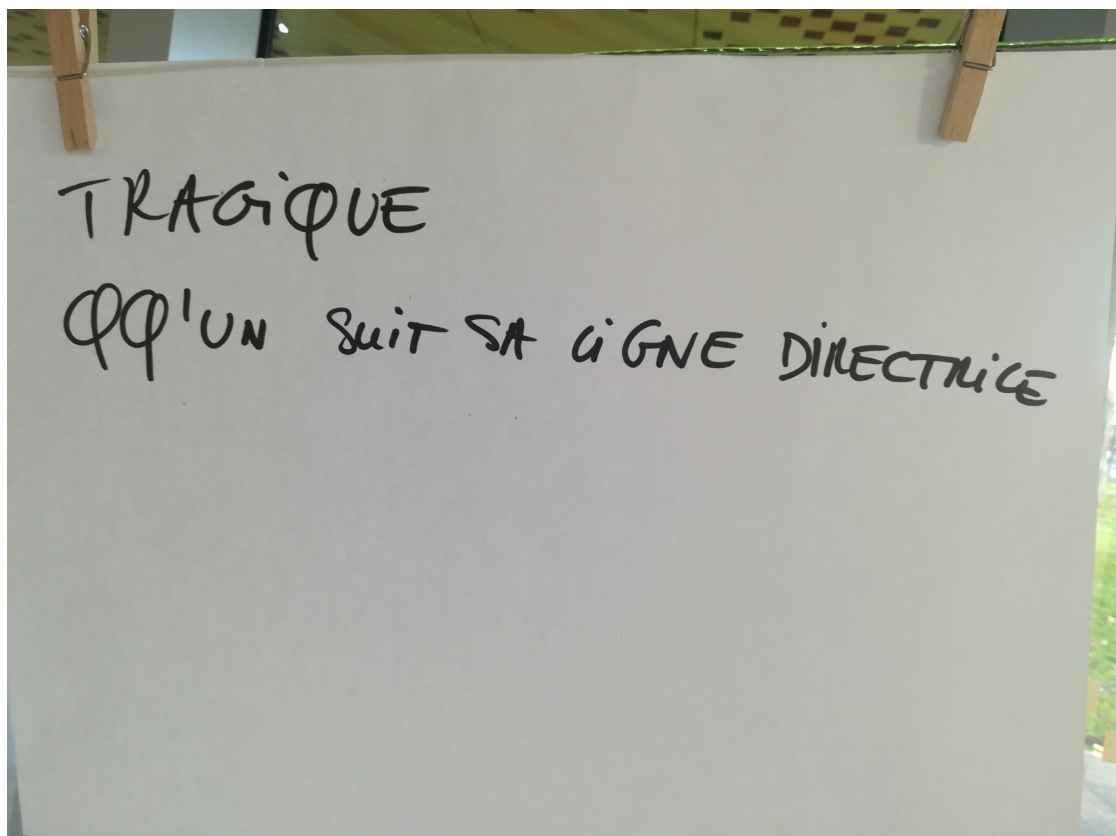 TRAGIQUE
QQ'UN SUIT SA LIGNE DIRECTRICE